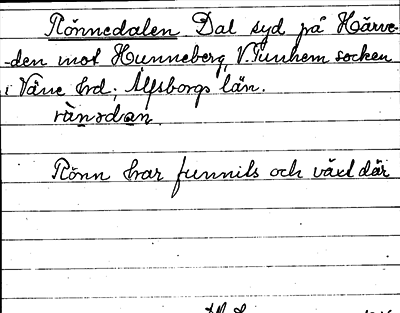 Rönnedalen Dal syd på Härve-
-den mot Hunneberg, V. Tunhem socken
i Väne hrd; Älfsborgs län.
Rönn har funnits och växt där